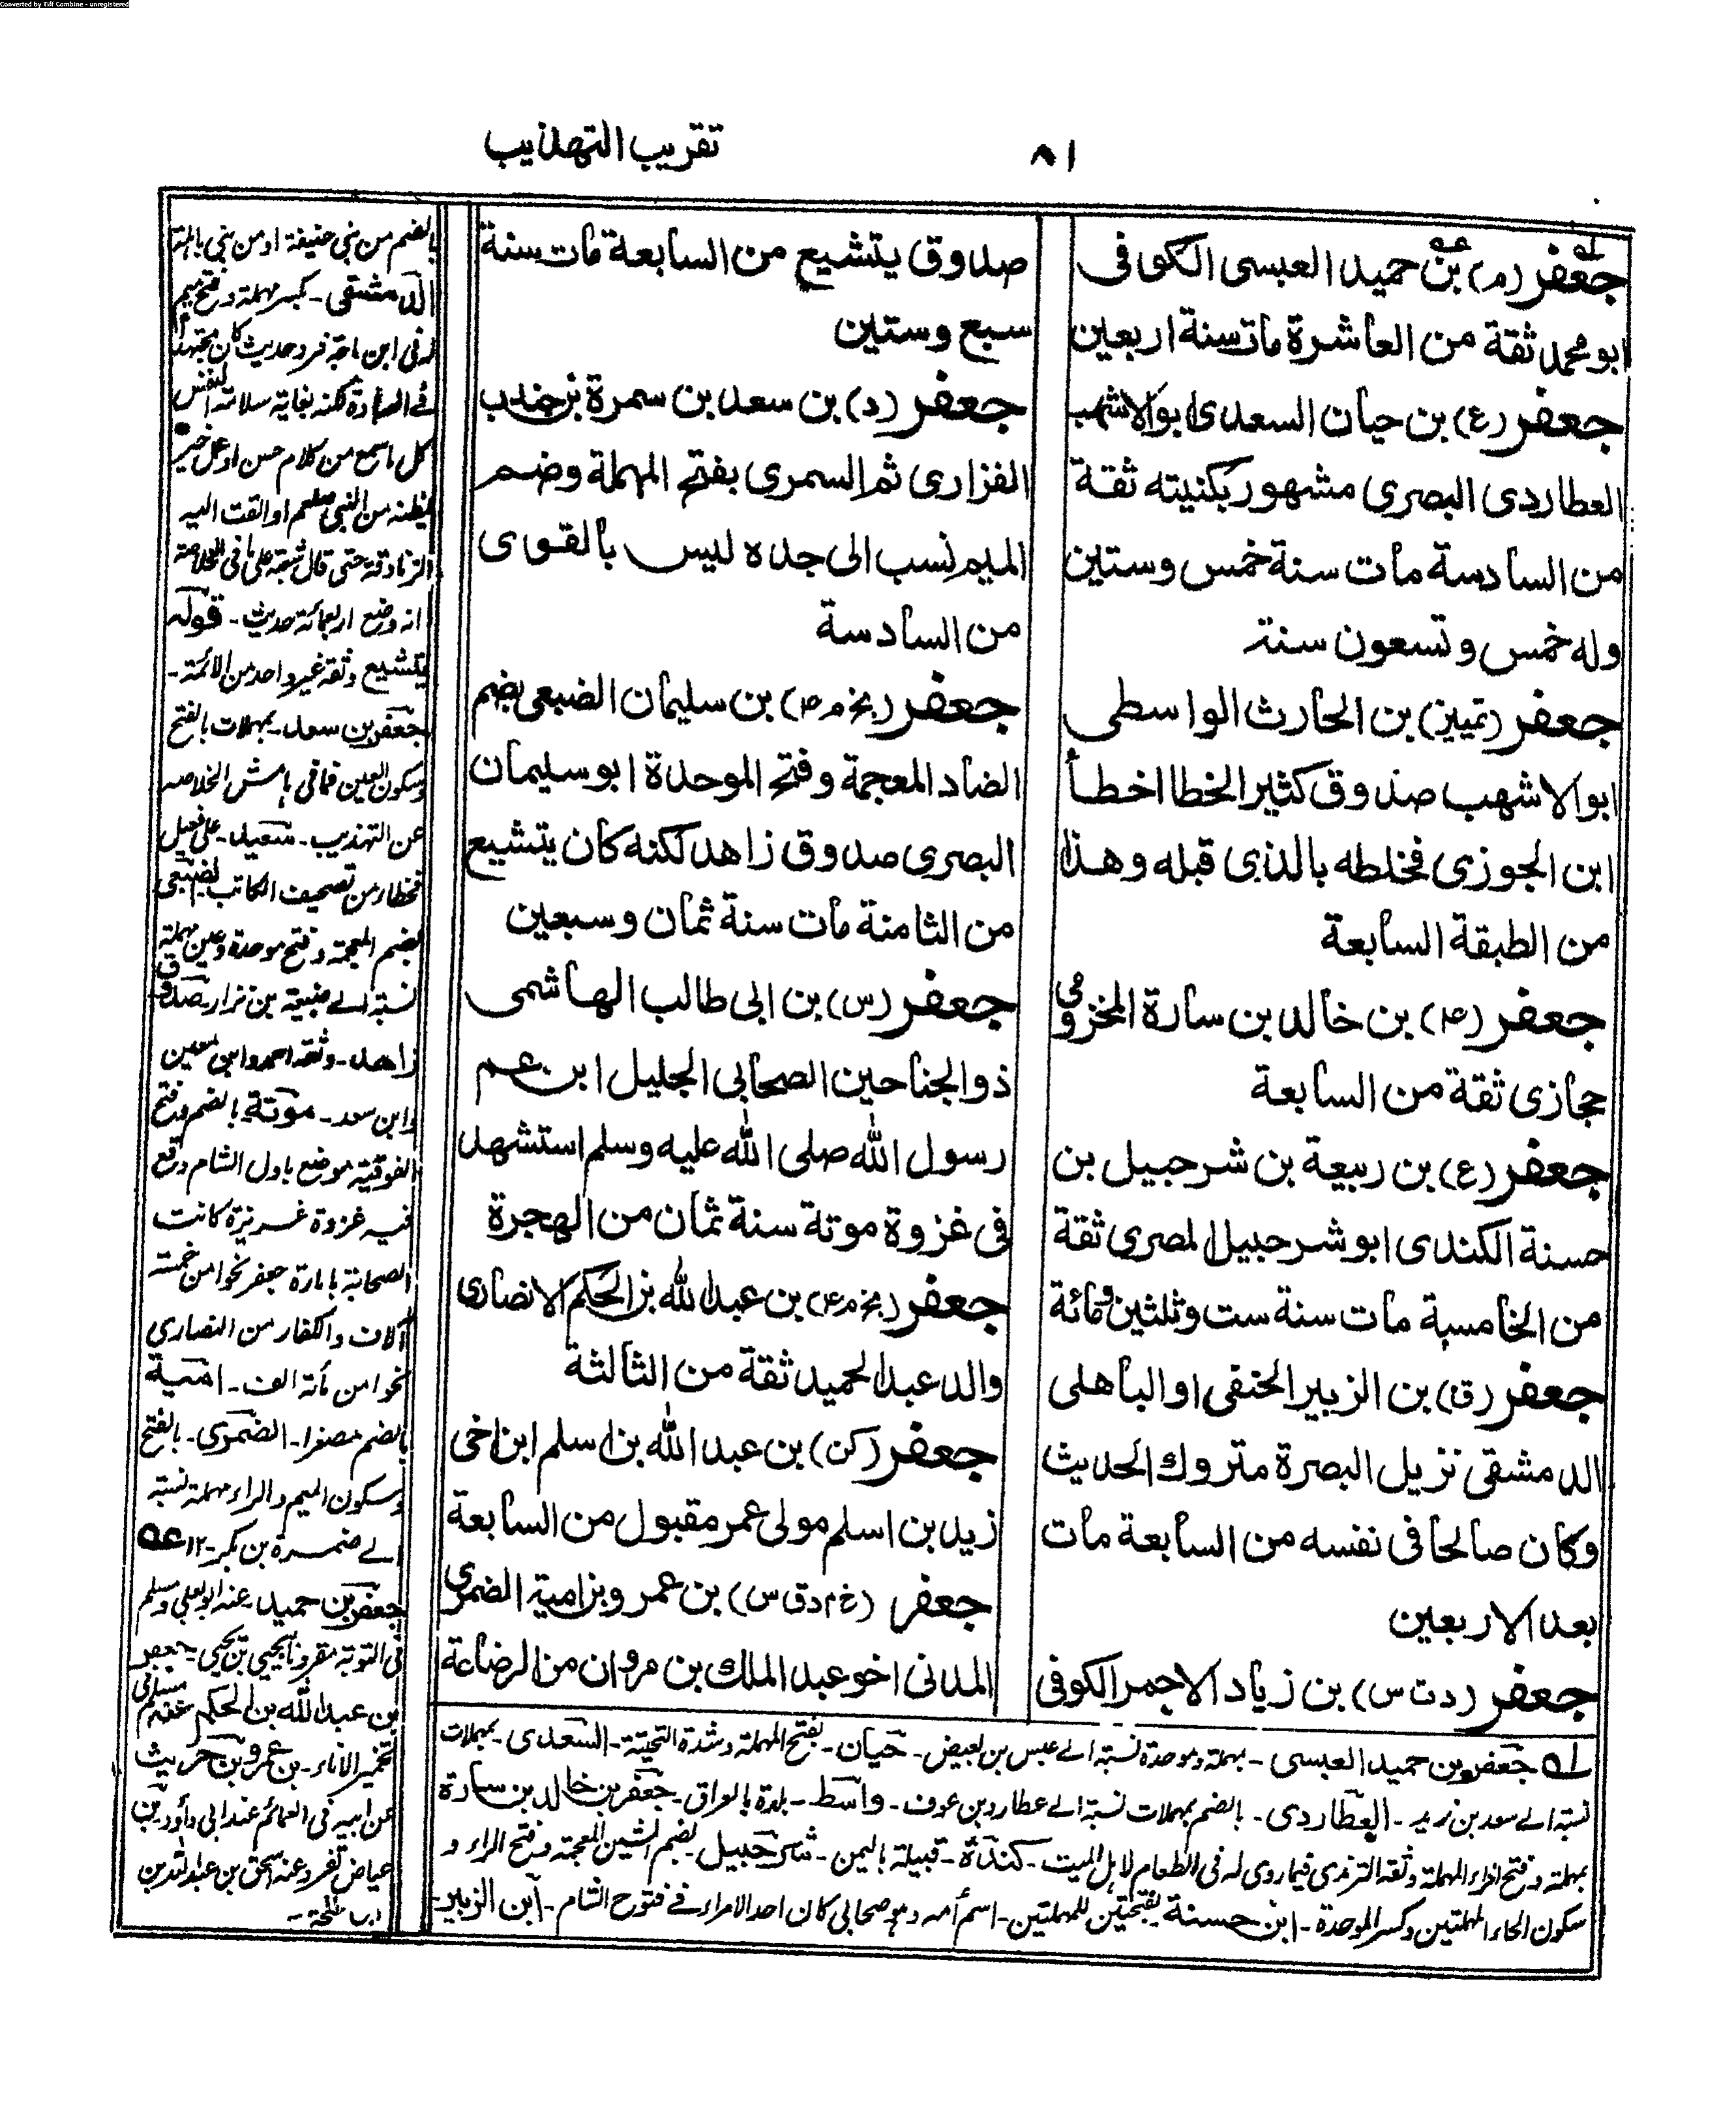 Converted by Tiff Combine - unregistered
٨١
تقريب التهذيب
جعفر (م) بن حميد العبسى الكوفى
ابو محمد ثقة من العاشرة مات سنة اربعين
جعفر (ع) بن حيان السعدى ابو الاشهب
العطاردى البصرى مشهور بكنيته ثقة
من السادسة مات سنة خمس وستين
وله خمس وتسعون سنة
جعفر (تمييز) بن الحارث الواسطى
ابو الاشهب صدوق كثير الخطا اخطأ
ابن الجوزى فخلطه بالذى قبله وهذا
من الطبقة السابعة
جعفر (٤) بن خالد بن سارة المخزومى
حجازى ثقة من السابعة
جعفر (ع) بن ربيعة بن شرحبيل بن
حسنة الكندى ابو شرحبيل المصرى ثقة
من الخامسة مات سنة ست وثلثين ومائة
جعفر (ق) بن الزبير الحنفى او الباهلى
الدمشقى نزيل البصرة متروك الحديث
وكان صالحا فى نفسه من السابعة مات
بعد الاربعين
جعفر (د ت س) بن زياد الاحمر الكوفى
صدوق يتشيع من السابعة مات سنة
سبع وستين
جعفر (د) بن سعد بن سمرة بن جندب
الفزارى ثم السمرى بفتح المهملة وضم
الميم نسب الى جده ليس بالقوى
من السادسة
جعفر (بخ م ٤) بن سليمان الضبعى بضم
الضاد المعجمة وفتح الموحدة ابو سليمان
البصرى صدوق زاهد لكنه كان يتشيع
من الثامنة مات سنة ثمان وسبعين
جعفر (س) بن ابى طالب الهاشمى
ذو الجناحين الصحابى الجليل ابن عم
رسول الله صلى الله عليه وسلم استشهد
فى غزوة موتة سنة ثمان من الهجرة
جعفر (بخ م ٤) بن عبد الله بن الحكم الانصارى
والد عبد الحميد ثقة من الثالثة
جعفر (كن) بن عبد الله بن اسلم ابن اخى
زيد بن اسلم مولى عمر مقبول من السابعة
جعفر (خ م د ق س) بن عمرو بن امية الضمرى
المدنى اخو عبد الملك بن مروان من الرضاعة
له جعفر بن حميد العبسى - بمهملة وموحدة نسبة الے عبس بن بغيض - حيان - بفتح المهملة وشدة التحتية - السعدى - بمهملات
نسبة الے سعد بن زيد - العطاردى - بالضم بمهملات نسبة الے عطارد بن عوف - واسط - بلدة بالعراق - جعفر بن خالد بن سارة
بمهملة وفتح الراء المهملة وثقه الترمذى فيما روى له فى الطعام لاهل الميت - كندة - قبيلة باليمن - شرحبيل - بضم الشين المعجمة وفتح الراء و
سكون الحاء المهملتين وكسر الموحدة - ابن حسنة - بفتحتين للمهملتين - اسم أمه وهو صحابى كان احد الامراء فے فتوح الشام - ابن الزبير -
بالضم من بنى حنيفة او من بنى باهلة
الدمشقى - بكسر مهملة وفتح ميم
له فى ابن ماجة فرد حديث كان مجتهدا
فے العبادة لكنه بغاية سلامة النفس
كل ما سمع من كلام حسن او عمل خير
يظنه من النبى صلعم او القت اليه
الزنادقة حتى قال شعبة على ما فى الخلاصة
انه وضع اربعمائة حديث - قوله
يتشيع وثقه غير واحد من الائمة -
جعفر بن سعد - بمهملات بالفتح
وسكون العين فما فى هامش الخلاصة
عن التهذيب - سعيد - على فعيل
فخطأ من تصحيف الكاتب الضبعى
بضم المعجمة وفتح موحدة وعين مهملة
نسبة الے ضبيعة بن نزار - صدوق
زاهد - وثقه احمد وابن معين
وابن سعد - موتة - بالضم وفتح
الفوقية موضع باول الشام وقع
فيه غزوة غريزة كانت
الصحابة بامارة جعفر نحوا من خمسة
آلاف والكفار من النصارى
نحوا من مأتة الف - امية
بالضم مصغرا - الضمرى - بالفتح
وسكون الميم والراء مهملة نسبة
الے ضمرة بن بكر - ١٢ عه
جعفر بن حميد عنه ابو يعلى ومسلم
فى التوبة مقرونا بيحيى بن يحيى - جعفر
بن عبد الله بن الحكم عنه مسلم فى
تخمير الاناء - بن عمرو بن حريث
عن ابيه فى العمائم عند ابى داود - بن
عياض تفرد عنه اسحق بن عبد الله بن
ابى طلحة -